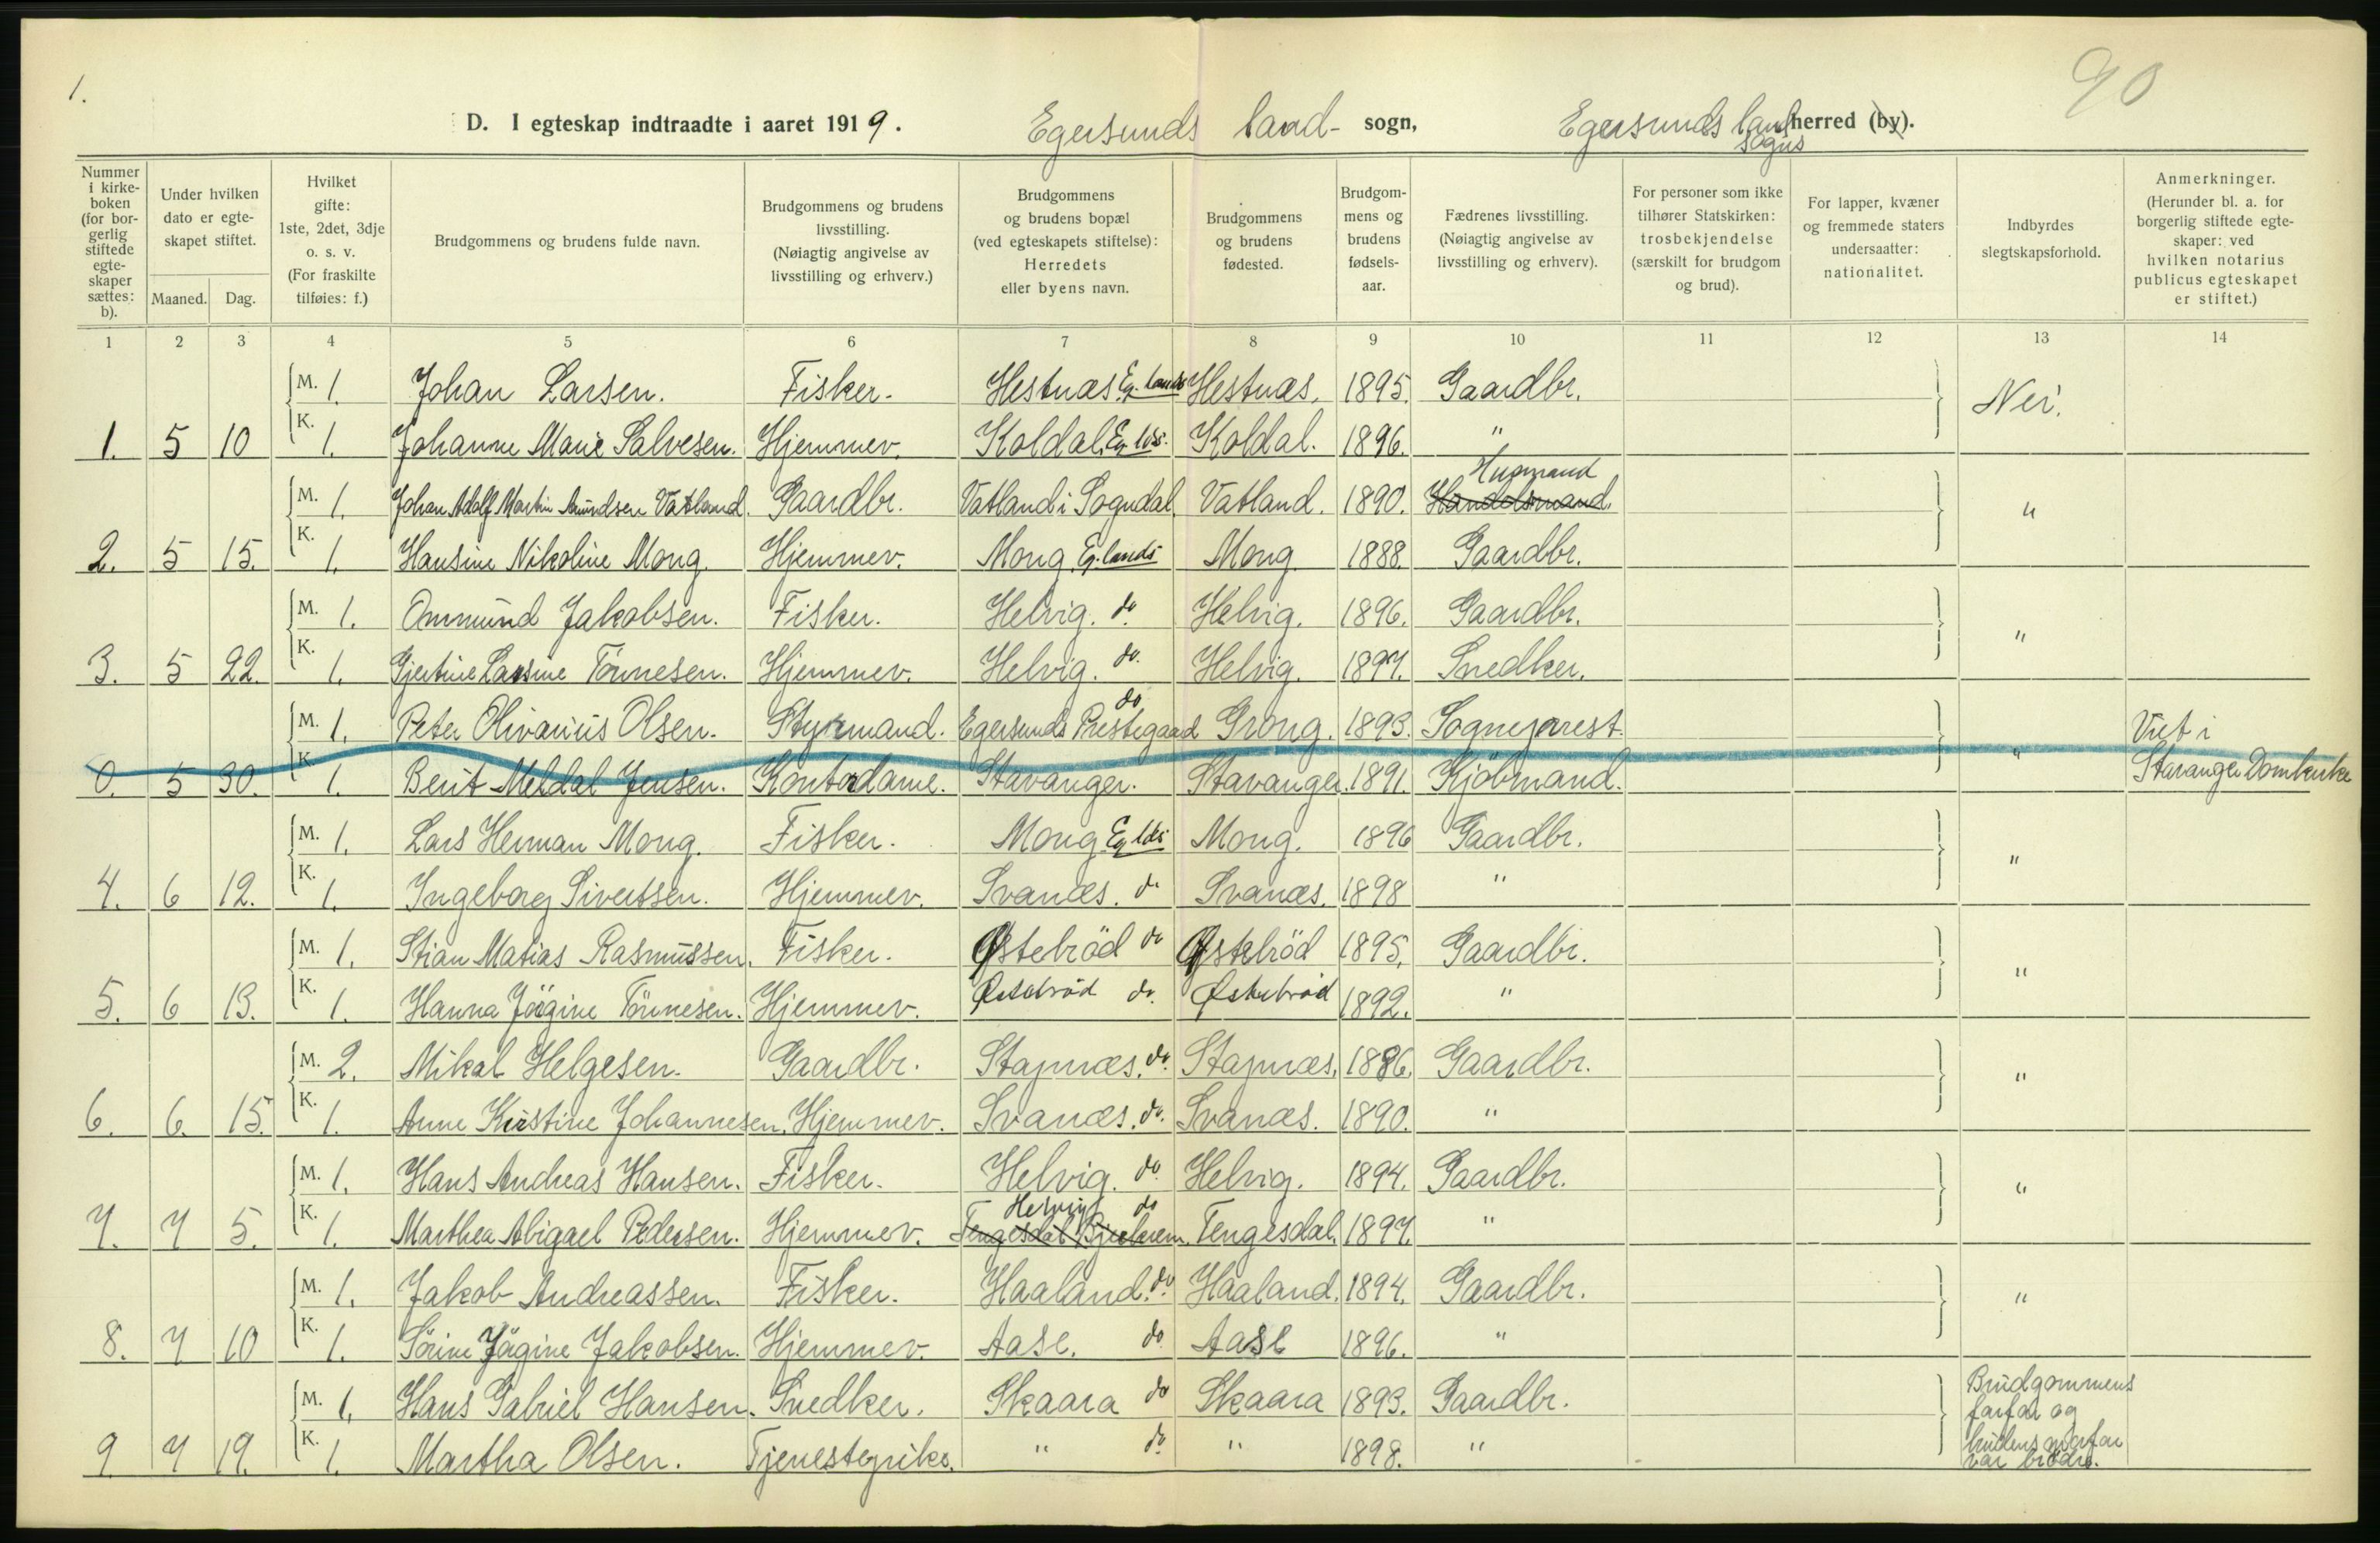 1.
90
D. I egteskap indtraadte i aaret 1919. Egersunds land- sogn, Egersunds landherred (by).
sogns
Nummer i kirkeboken (for borgerlig stiftede egteskaper sættes: b).
Under hvilken dato er egteskapet stiftet.
Maaned. Dag.
Hvilket gifte: 1ste, 2det, 3dje o. s. v. (For fraskilte tilføies: f.)
Brudgommens og brudens fulde navn.
Brudgommens og brudens livsstilling. (Nøiagtig angivelse av livsstilling og erhverv.)
Brudgommens og brudens bopæl (ved egteskapets stiftelse): Herredets eller byens navn.
Brudgommens og brudens fødested.
Brudgommens og brudens fødselsaar.
Fædrenes livsstilling. (Nøiagtig angivelse av livsstilling og erhverv).
For personer som ikke tilhører Statskirken: trosbekjendelse (særskilt for brudgom og brud).
For lapper, kvæner og fremmede staters undersaatter: nationalitet.
Indbyrdes slegtskapsforhold.
Anmerkninger. (Herunder bl. a. for borgerlig stiftede egteskaper: ved hvilken notarius publicus egteskapet er stiftet.)
1 2 3 4 5 6 7 8 9 10 11 12 13 14
M. 1. Johan Larsen. Fisker. Hestnæs Eg. lands Hestnæs. 1895. Gaardbr. Nei.
1. 5 10 K. 1. Johanne Marie Salvesen. Hjemmev. Koldal. Eg. lds. Koldal. 1896. "
Husmand
M. 1. Johan Adolf Martin Amundsen Vatland. Gaardbr. Vatland i Sogndal. Vatland. 1890. Handelsmand. "
2. 5 15. K. 1. Hansine Nikoline Mong. Hjemmev. Mong Eg. lands Mong 1888. Gaardbr.
M. 1. Ommund Jakobsen. Fisker. Helvig. do. Helvig. 1896. Gaardbr. "
3. 5 22. K. 1. Gjertine Larsine Tönnesen. Hjemmev. Helvig. do. Helvig. 1897. Snedker.
do
M. 1. Peter Olivarius Olsen. Styrmand. Egersunds Prestegaard Grong. 1893. Sogneprest. " Viet i
0. 5 30. K. 1. Berit Meldal Jensen. Kontordame. Stavanger. Stavanger. 1891. Kjöbmand. Stavanger Domkirke
M. 1. Lars Herman Mong. Fisker. Mong Eg. lds Mong. 1896 Gaardbr. "
4. 6 12. K. 1. Ingeborg Sivertsen. Hjemmev. Svanæs. do Svanæs. 1898 "
M. 1. Stian Matias Rasmussen. Fisker. Østebröd do Østebröd 1895. Gaardbr. "
5. 6 13. K. 1. Hanna Jögine Tönnesen. Hjemmev. Østebröd do. Østebröd 1892. "
M. 2. Mikal Helgesen. Gaardbr. Stapnæs. do. Stapnæs. 1886. Gaardbr. "
6. 6. 15. K. 1. Anne Kirstine Johannesen. Hjemmev. Svanæs. do. Svanæs. 1890. "
M. 1. Hans Andreas Hansen. Fisker. Helvig. do Helvig. 1894. Gaardbr. "
Helvig do
7. 7 5. K. 1. Marthea Abigael Pedersen. Hjemmev. Tengesdal Bjerkreim. Tengesdal. 1897. "
M. 1. Jakob Andreassen. Fisker. Haaland. do. Haaland. 1894. Gaardbr. "
8. 7 10 K. 1. Sörine Jögine Jakobsen. Hjemmev. Aase. do Aase 1896. "
M. 1. Hans Gabriel Hansen. Snedker. Skaara do Skaara 1893. Gaardbr. Brudgommens
farfar og
9. 7 19. K. 1. Martha Olsen. Tjenestepike. " do. " 1898. " brudens morfar
var brödre.